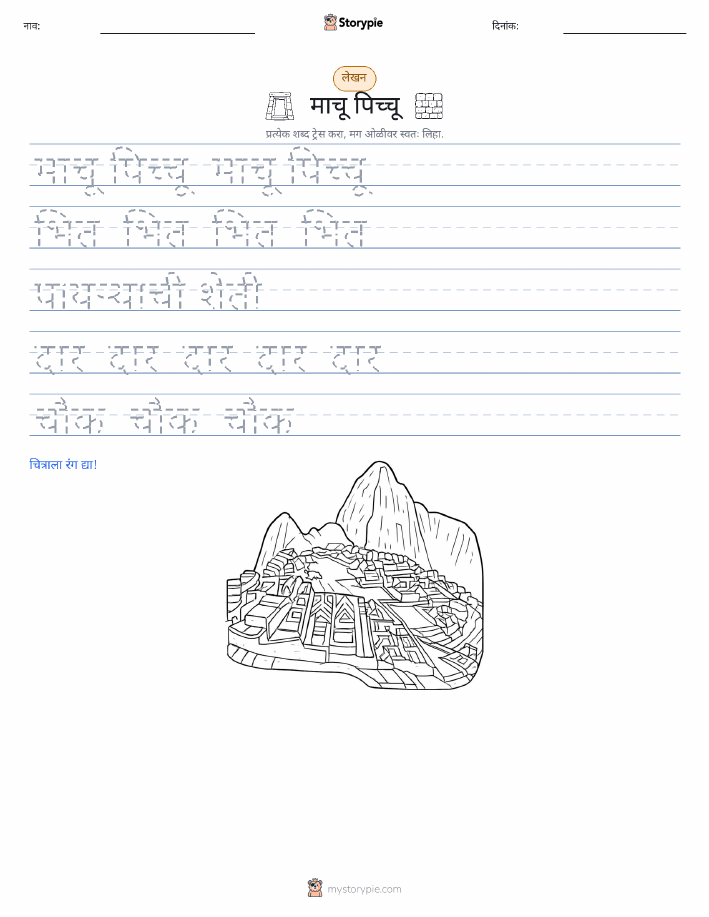 नाव:
Storypie
दिनांक:
लेखन
माचू पिच्चू
प्रत्येक शब्द ट्रेस करा, मग ओळीवर स्वतः लिहा.
माचू पिच्चू माचू पिच्चू
भिंत भिंत भिंत भिंत
पायऱ्याची शेती
दार दार दार दार दार
चौक चौक चौक
चित्राला रंग द्या!
mystorypie.com